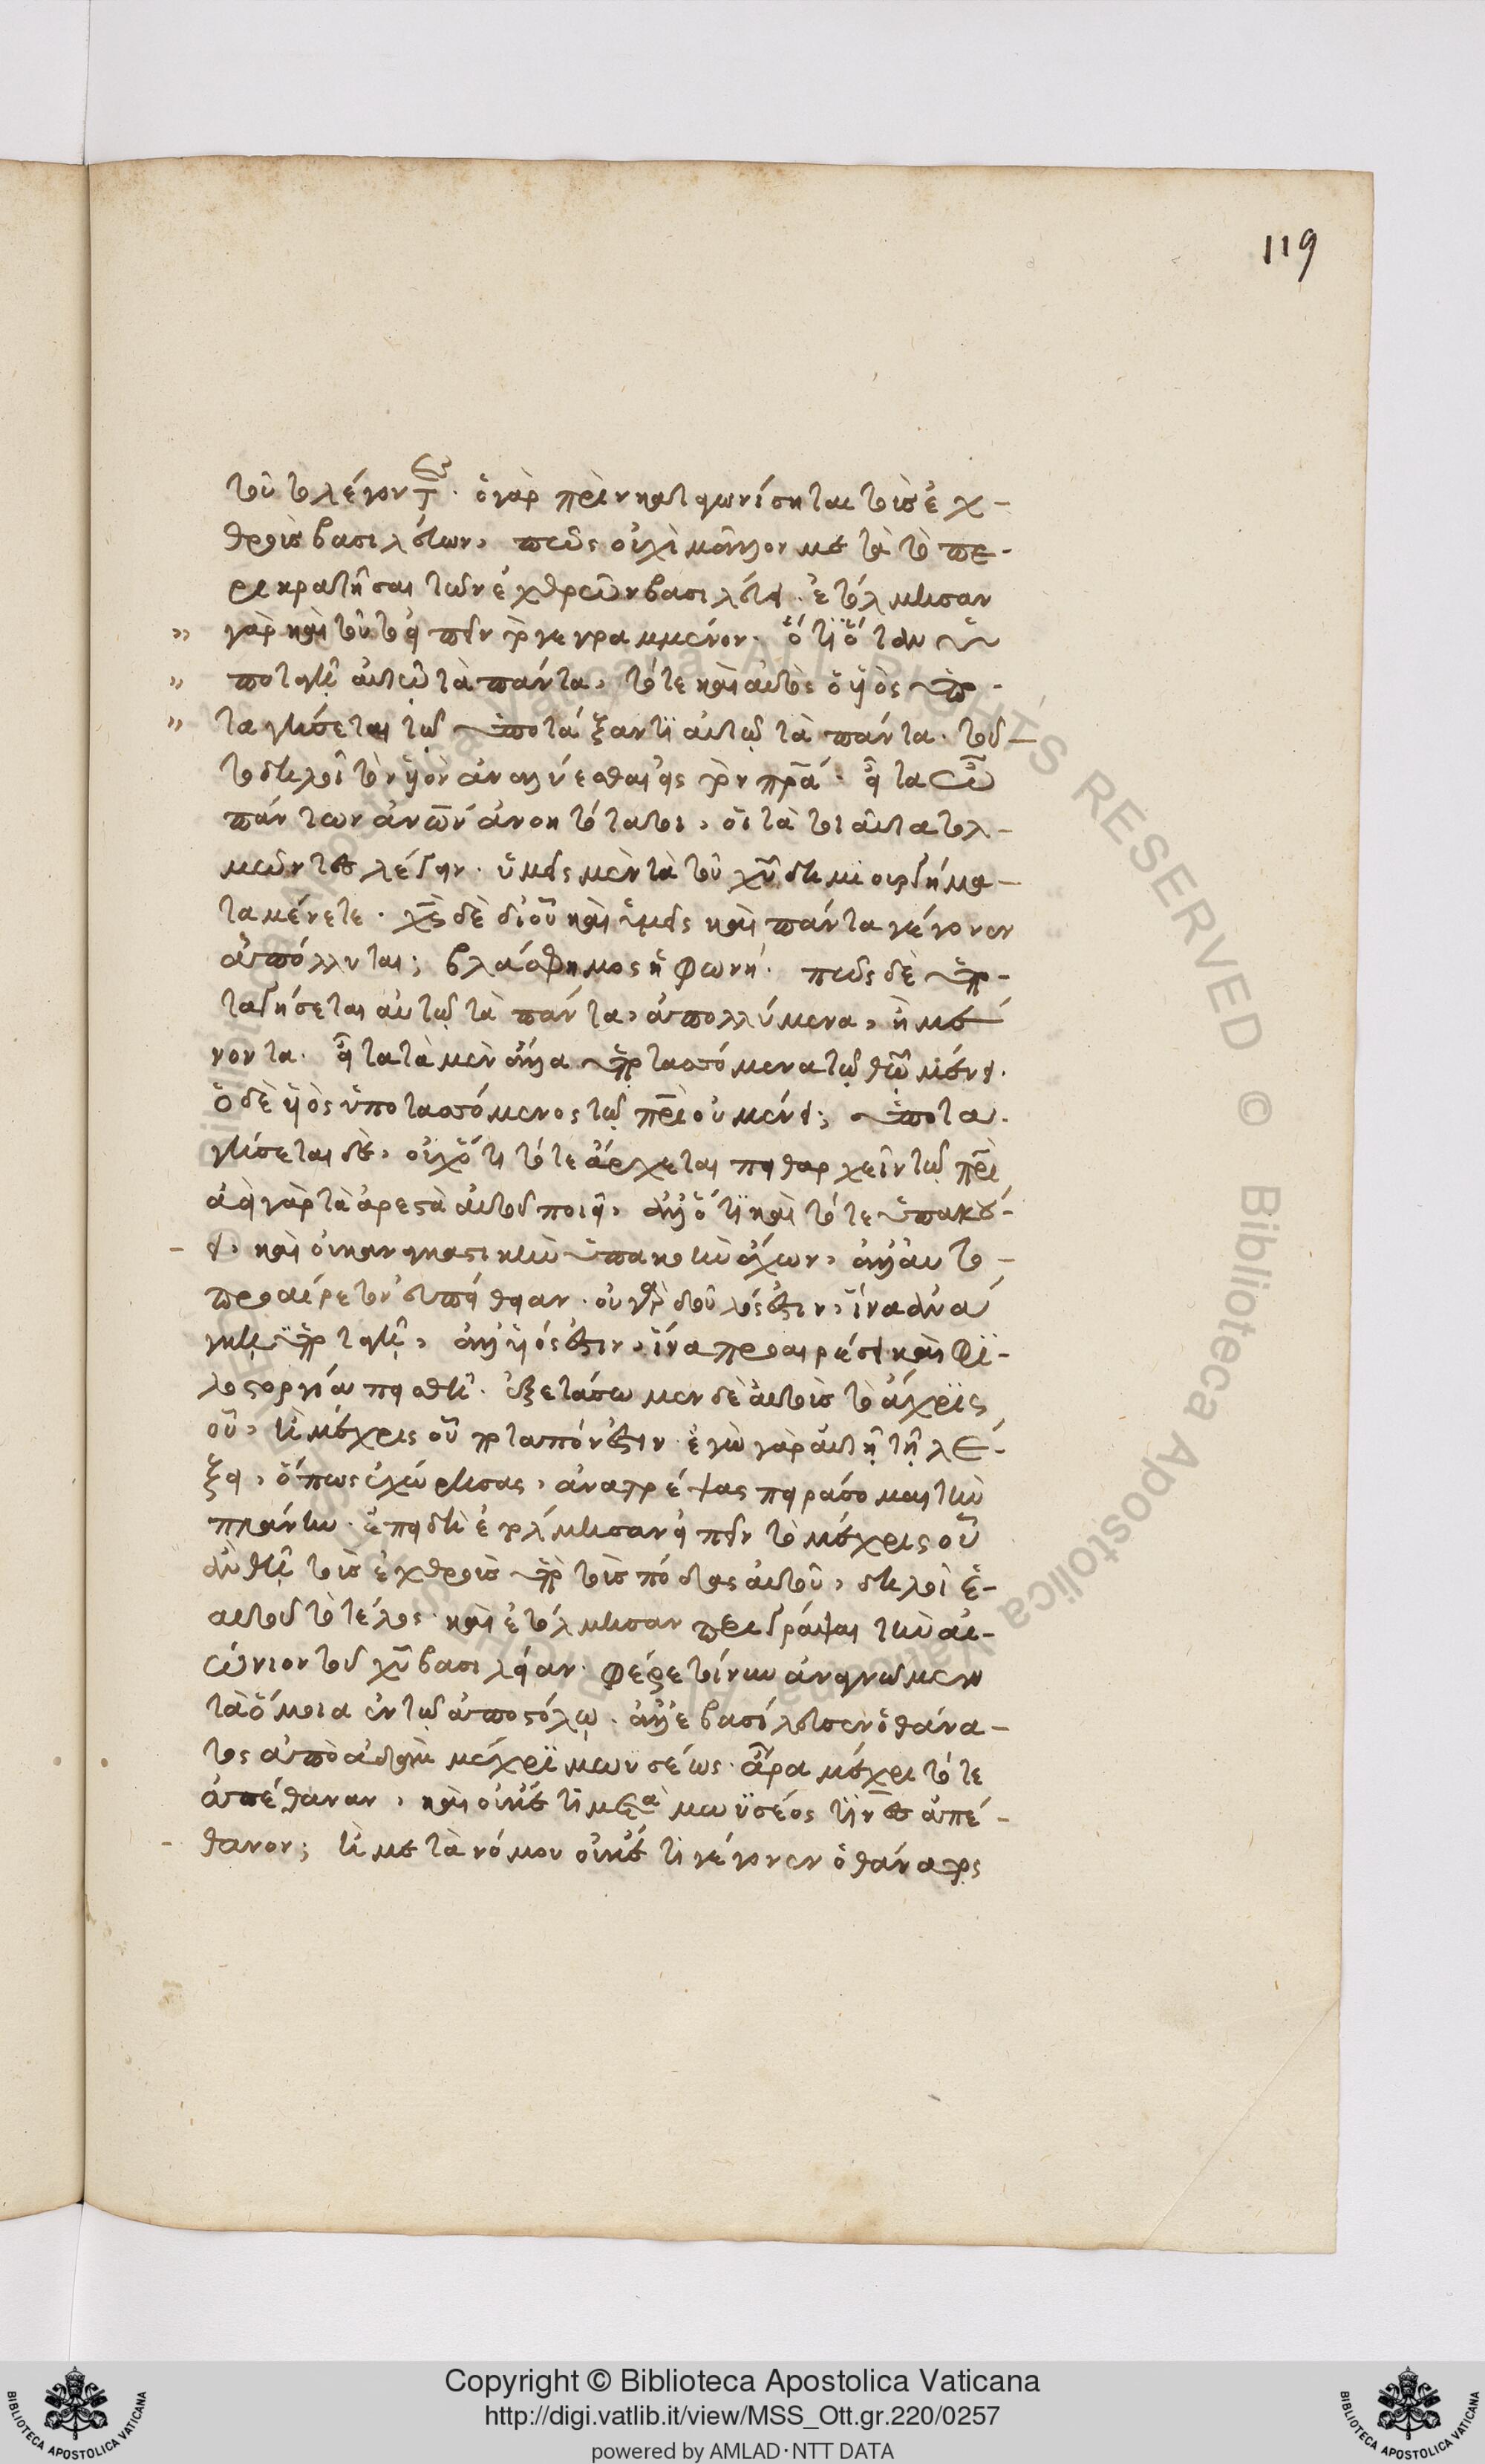 119
τοῦτο λέγοντων. ὁ γὰρ πρὶν καταγωνίσηται τοὺς ἐχ-
θροὺς βασιλεύων, πῶς οὐχὶ μᾶλλον μετὰ τὸ πε-
ρικρατῆσαι τῶν ἐχθρῶν βασιλεύει. ἐτόλμησαν
γὰρ καὶ τοῦτο εἰπεῖν τὸ γεγραμμένον. ὅτι ὅταν ὑ-
ποταγῇ αὐτῷ τὰ πάντα, τότε καὶ αὐτὸς ὁ υἱὸς ὑπο-
ταγήσεται τῷ ὑποτάξαντι αὐτῷ τὰ πάντα. τοῦ-
το δηλοῖ τὸν υἱὸν ἀναλύεσθαι εἰς τὸν πρα. εἶτα ὦ
πάντων ἀνων ἀνοητότατοι, οἱ τὰ τοιαῦτα τολ-
μῶντες λέγειν. ὑμεῖς μὲν τὰ τοῦ χυ δημιουργήμα-
τα μένετε. χς δὲ δι' οὗ καὶ ὑμεῖς καὶ πάντα γέγονεν
ἀπόλλυται; βλάσφημος ἡ φωνή. πῶς δὲ ὑπο-
ταγήσεται αὐτῷ τὰ πάντα, ἀπολλύμενα, ἢ μέ-
νοντα. εἶτα τὰ μὲν ἄλλα ὑποτασσόμενα τῷ θω μένει.
ὁ δὲ υἱὸς ὑποτασσόμενος τῷ πρι οὐ μένει; ὑποτα-
γήσεται δὲ, οὐχ ὅτι τότε ἄρχεται πειθαρχεῖν τῷ πρι
ἀεὶ γὰρ τὰ ἀρεστὰ αὐτοῦ ποιεῖ, ἀλλ' ὅτι καὶ τότε ὑπακού-
ει, καὶ οὐκ ἀναγκαστικὴν ὑπακοὴν ἔχων, ἀλλ' αὐτο-
προαίρετον εὐπείθειαν. οὐ γὰρ δοῦλός ἐστιν, ἵνα ἀνά-
γκῃ ὑποταγῇ, ἀλλ' υἱός ἐστιν, ἵνα προαιρέσει καὶ φι-
λοστοργίᾳ πεισθῇ. ἐξετάσωμεν δὲ αὐτοὺς τὸ ἄχρις
οὗ, τὶ μέχρις οὗ ποταπόν ἐστιν. ἐγὼ γὰρ αὐτῇ τῇ λέ-
ξει, ὅπως ἐχώρησας, ἀνατρέψας πειράσομαι τὴν
πλάνην. ἐπειδὴ ἐτόλμησαν εἰπεῖν τὸ μέχρις οὗ
ἂν θῇ τοὺς ἐχθροὺς ὑπὸ τοὺς πόδας αὐτοῦ, δηλοῖ ἑ-
αυτοῦ τὸ τέλος. καὶ ἐτόλμησαν περιγράψαι τὴν αἰ-
ώνιον τοῦ χυ βασιλείαν. φέρε τοίνυν ἀναγνῶμεν
τὰ ὅμοια ἐν τῷ ἀποστόλῳ. ἀλλ' ἐβασίλευσεν ὁ θάνα-
τος ἀπὸ ἀδὰμ μέχρι μωυσέως. ἆρα μέχρι τότε
ἀπέθαναν, καὶ οὐκέτι μετὰ μωυσέος τινὲς ἀπέ-
θανον; τὶ μετὰ νόμου οὐκέτι γέγονεν ὁ θάνατος
Copyright © Biblioteca Apostolica Vaticana
http://digi.vatlib.it/view/MSS_Ott.gr.220/0257
powered by AMLAD·NTT DATA